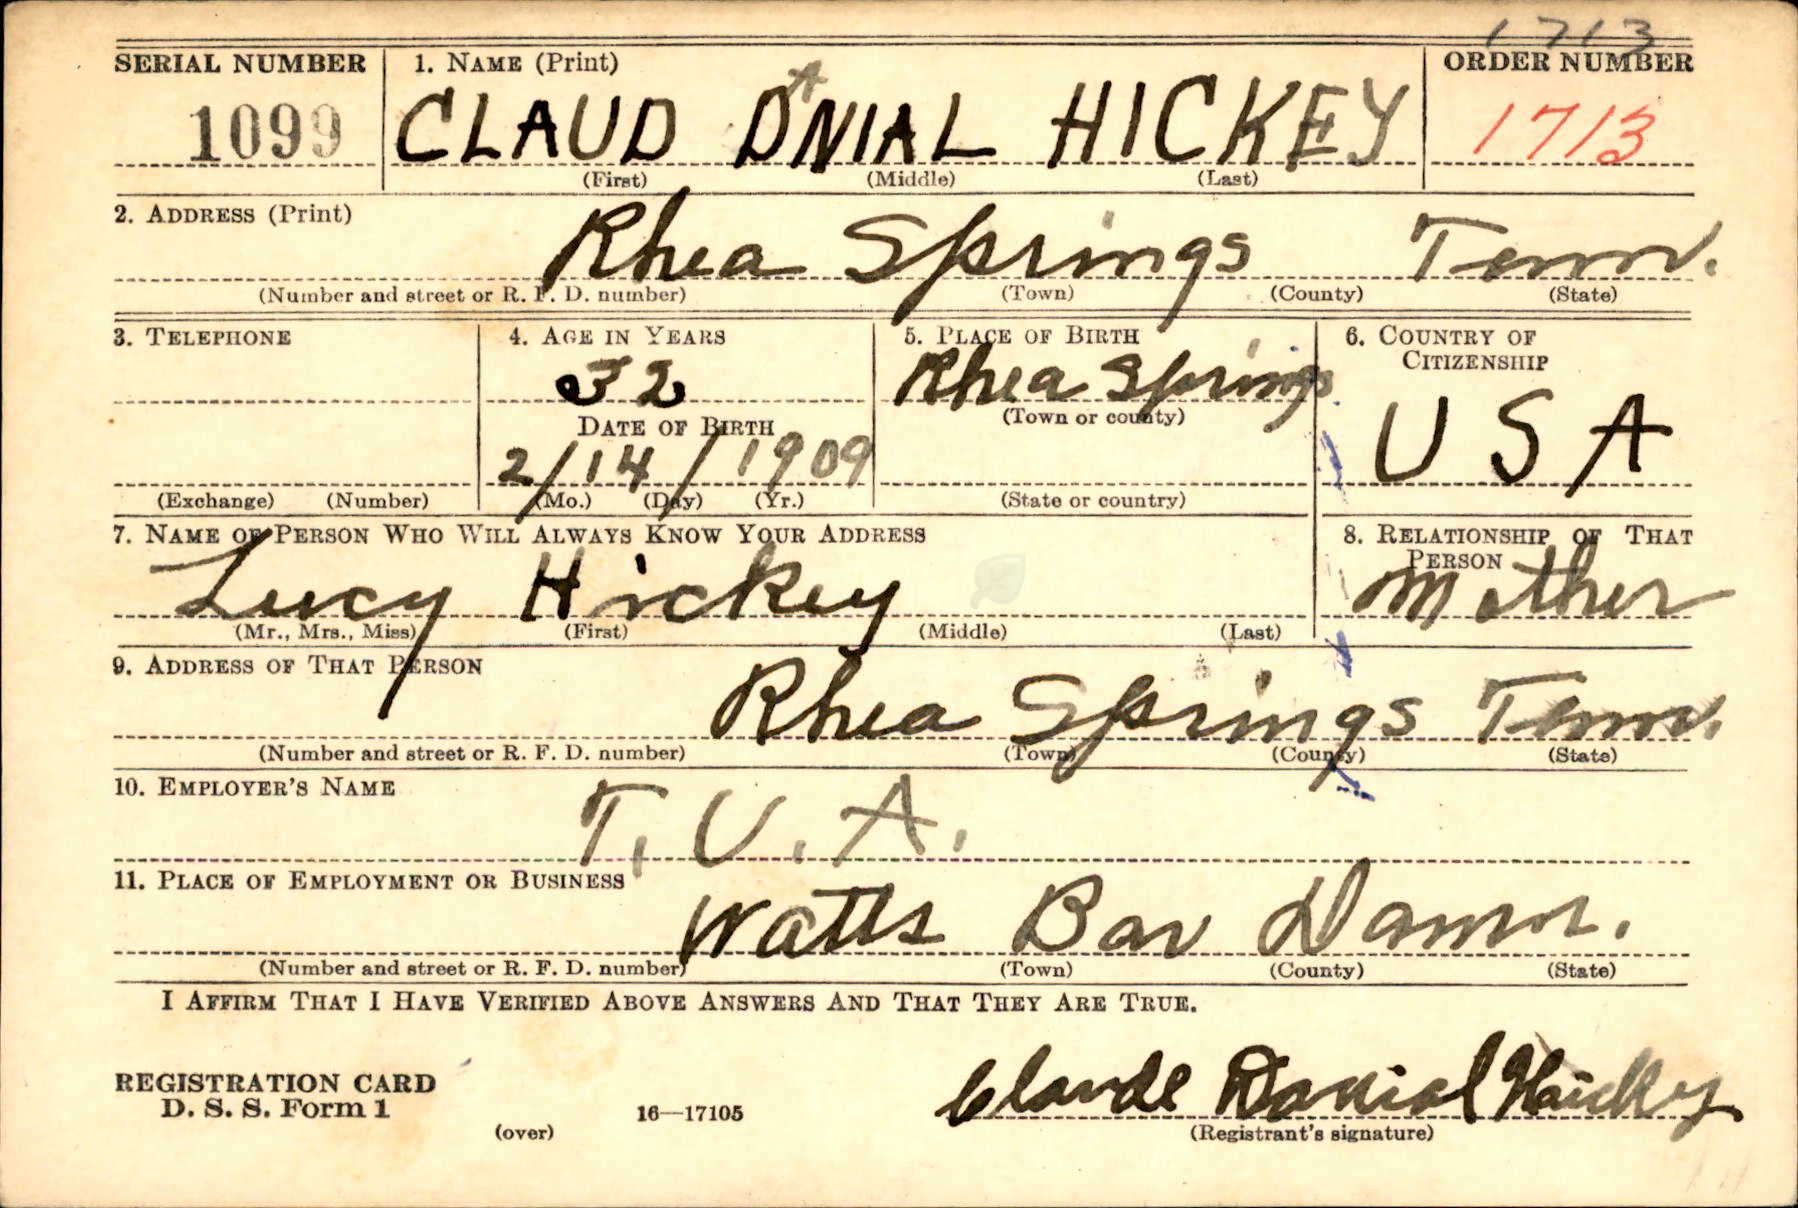 1713
SERIAL NUMBER 1. NAME (Print) ORDER NUMBER
1099 CLAUD DANIAL HICKEY 1713
(First) (Middle) (Last)
2. ADDRESS (Print)
Rhea Springs Tenn.
(Number and street or R. F. D. number) (Town) (County) (State)
3. TELEPHONE 4. AGE IN YEARS 5. PLACE OF BIRTH 6. COUNTRY OF CITIZENSHIP
32 Rhea Springs
(Town or county)
DATE OF BIRTH
2/14/1909 USA
(Exchange) (Number) (Mo.) (Day) (Yr.) (State or country)
7. NAME OF PERSON WHO WILL ALWAYS KNOW YOUR ADDRESS 8. RELATIONSHIP OF THAT PERSON
Lucy Hickey Mother
(Mr., Mrs., Miss) (First) (Middle) (Last)
9. ADDRESS OF THAT PERSON
Rhea Springs Tenn.
(Number and street or R. F. D. number) (Town) (County) (State)
10. EMPLOYER'S NAME
T. V. A.
11. PLACE OF EMPLOYMENT OR BUSINESS
Watts Bar Damn.
(Number and street or R. F. D. number) (Town) (County) (State)
I AFFIRM THAT I HAVE VERIFIED ABOVE ANSWERS AND THAT THEY ARE TRUE.
REGISTRATION CARD
D. S. S. Form 1 16—17105 Claude Danial Hickey
(over) (Registrant's signature)